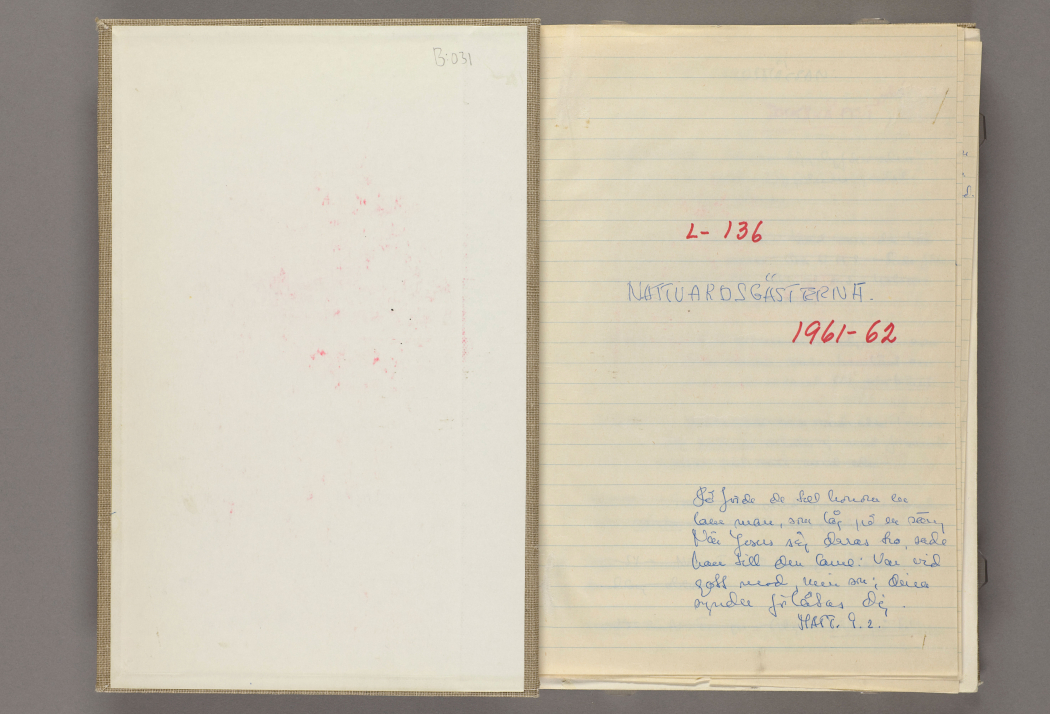 B:031
L- 136
NATTVARDSGÄSTERNA.
1961-62
Så förde de till honom en
lam man, som låg på en säng
När Jesus såg deras tro, sade
han till den lame: Var vid
gott mod, min son; dina
synder förlåtas dig.
MATT. 9.2.